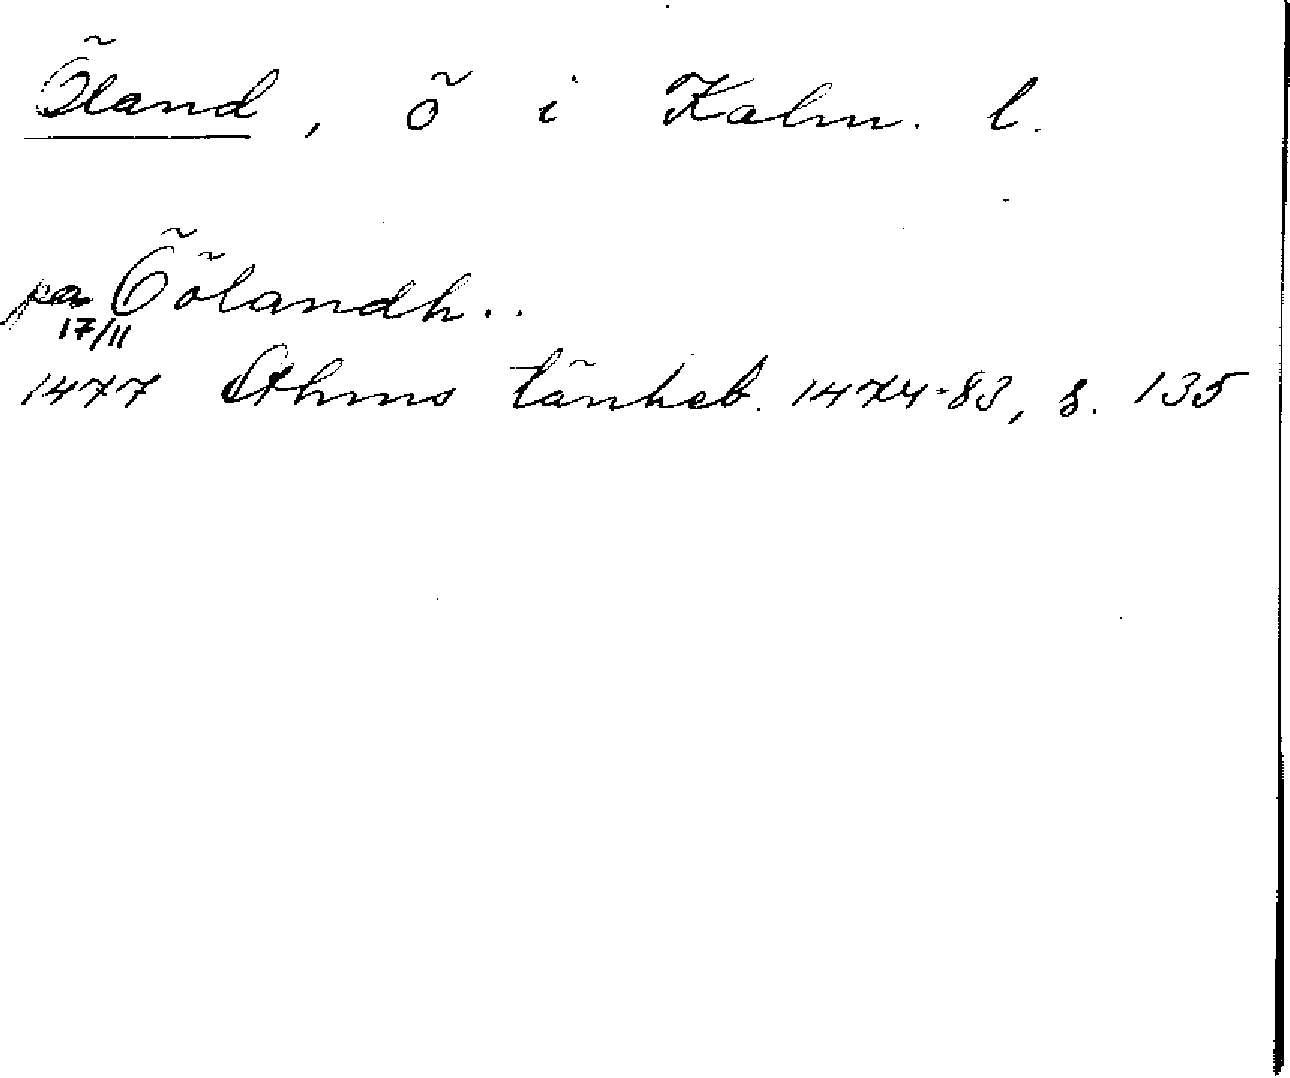 Öland, ö i Kalm. l.
pa Öölandh..
17/11
1477 Sthms tänkeb. 1474-83, s. 135